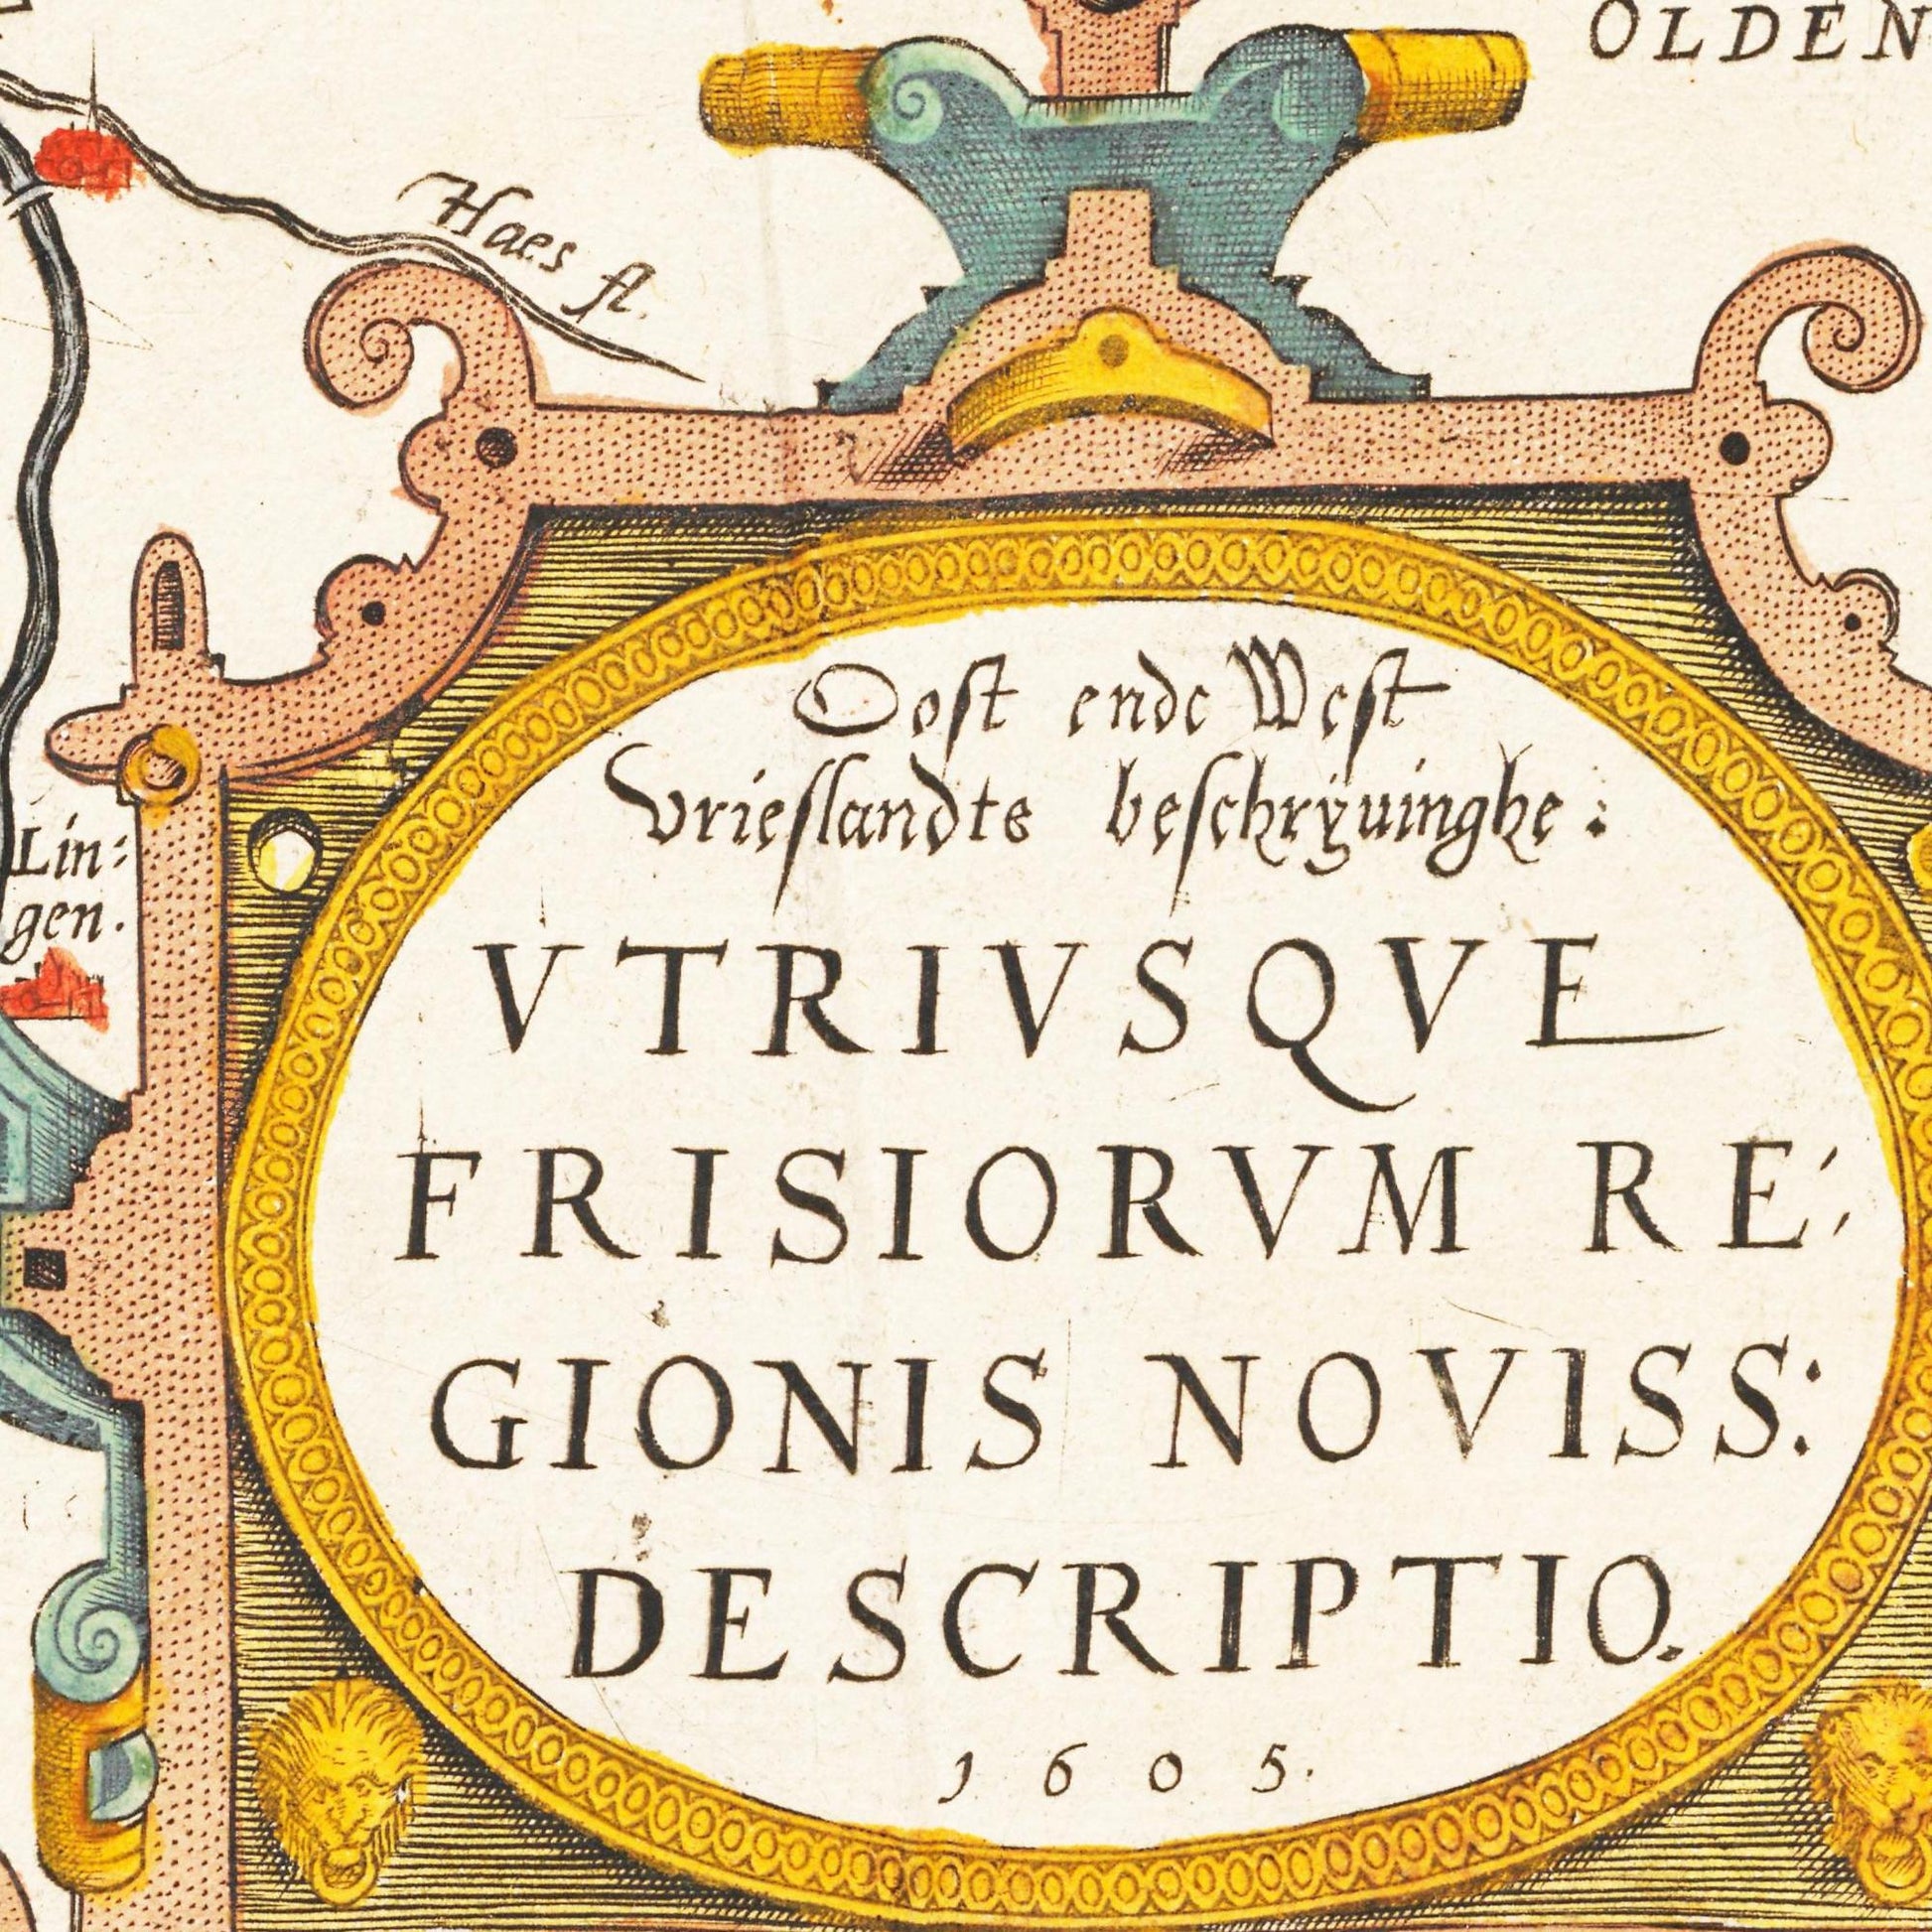 OLDEN
Haes fl.
Lin:
gen.
Oost ende West
Vrieslandts beschrÿuinghe:
VTRIVSQVE
FRISIORVM RE:
GIONIS NOVISS:
DESCRIPTIO.
1605.